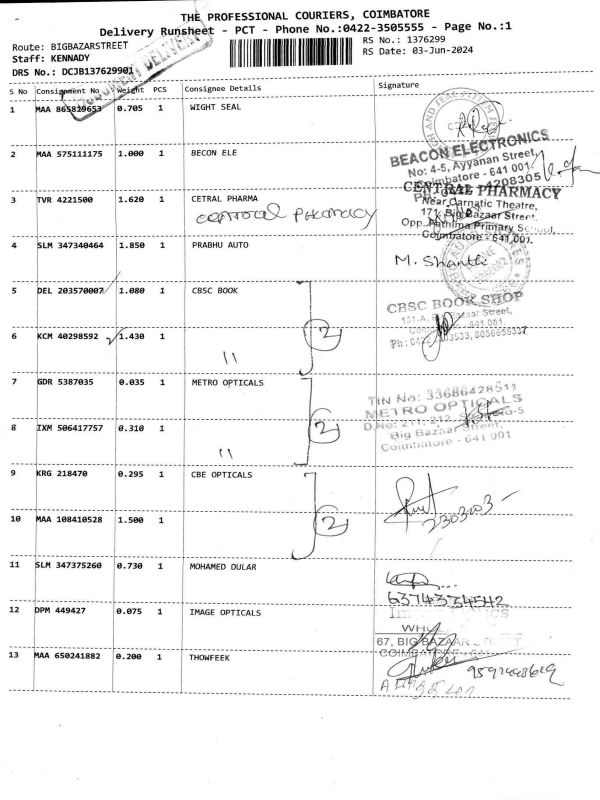 THE PROFESSIONAL COURIERS, COIMBATORE
Delivery Runsheet - PCT - Phone No.:0422-3505555 - Page No.:1
Route: BIGBAZARSTREET
RS No.: 1376299
Staff: KENNADY
RS Date: 03-Jun-2024
DRS No.: DCJB137629901
DOCUMENT DELIVERY
S No Consignment No Weight PCS Consignee Details Signature
1 MAA 865829653 0.705 1 WIGHT SEAL
2 MAA 575111175 1.000 1 BECON ELE
BEACON ELECTRONICS
No: 4-5, Ayyanan Street,
Coimbatore - 641 001.
3 TVR 4221500 1.620 1 CETRAL PHARMA
central PHARMACY
CENTRAL PHARMACY
Near Carnatic Theatre,
171, Big Bazaar Street,
Opp. Fathima Primary School,
Coimbatore - 641 001.
4 SLM 347340464 1.850 1 PRABHU AUTO
M. Shanthi
5 DEL 203570007 1.080 1 CBSC BOOK
2
CBSC BOOK SHOP
6 KCM 40298592 1.430 1
"
7 GDR 5387035 0.035 1 METRO OPTICALS
2
TIN No: 33686428511
METRO OPTICALS
D.No: 211, 212,
Big Bazaar Street,
Coimbatore - 641 001
8 IXM 506417757 0.310 1
"
9 KRG 218470 0.295 1 CBE OPTICALS
2
2303003
10 MAA 108410528 1.500 1
11 SLM 347375260 0.730 1 MOHAMED DULAR
6374334542
12 DPM 449427 0.075 1 IMAGE OPTICALS
67, BIG BAZAAR STREET
13 MAA 650241882 0.200 1 THOWFEEK